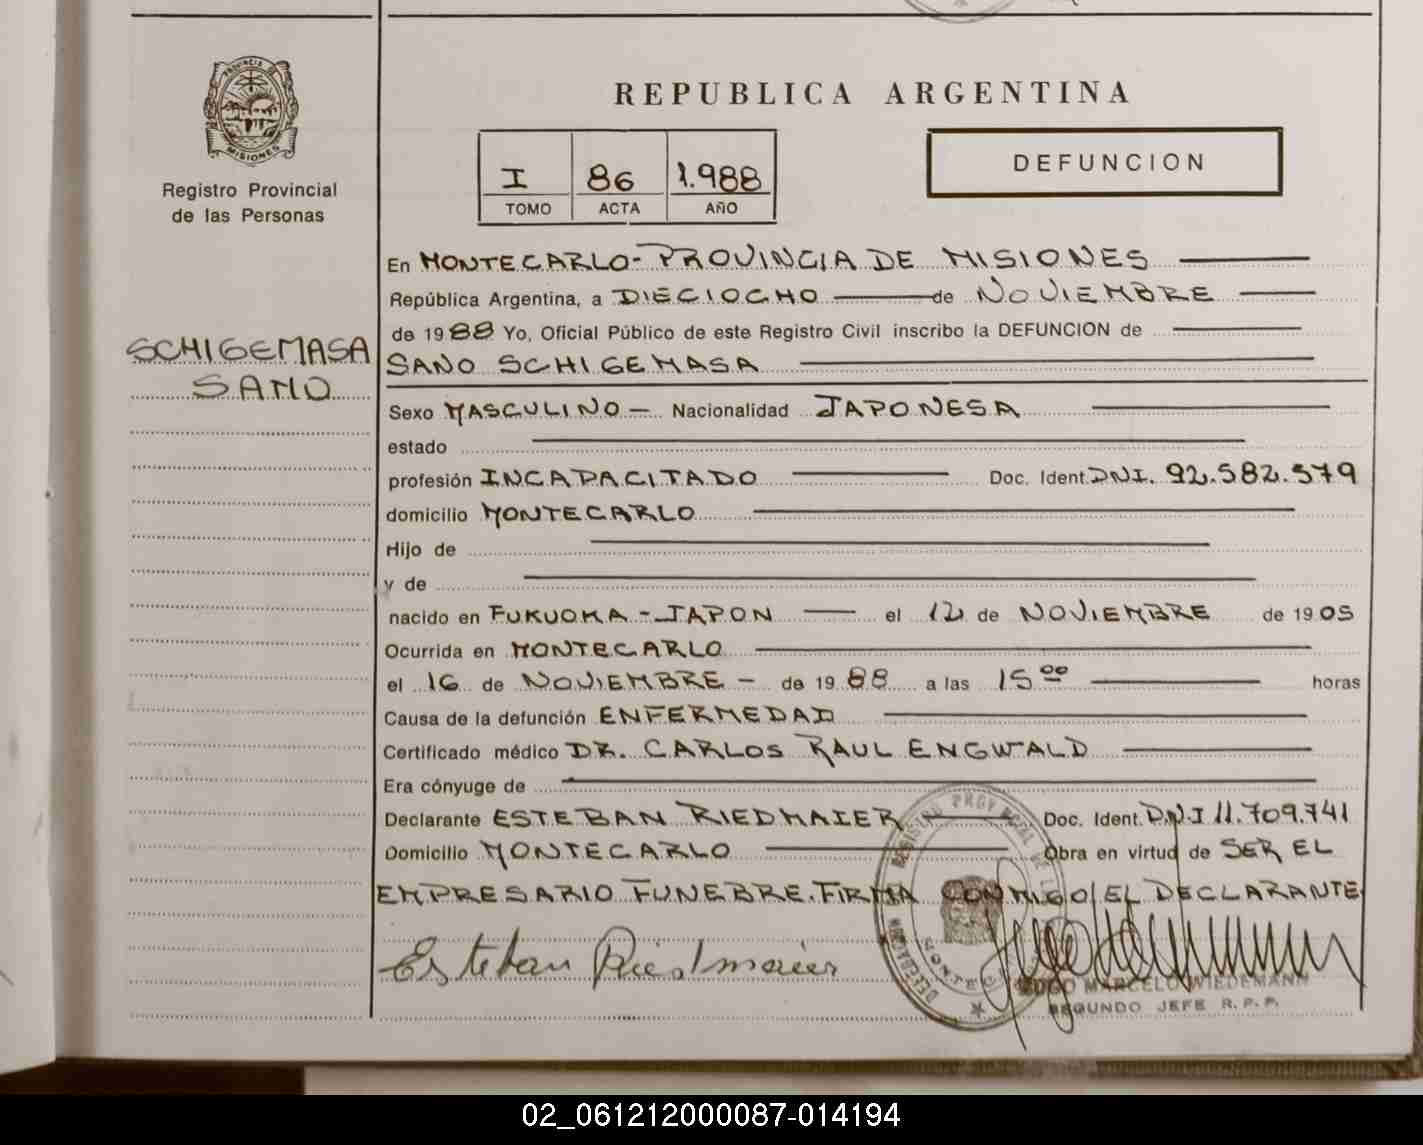 PROVINCIA DE
MISIONES
Registro Provincial
de las Personas
SCHIGEMASA
SANO
REPUBLICA ARGENTINA
I 86 1.988
TOMO ACTA AÑO
DEFUNCION
En MONTECARLO- PROVINCIA DE MISIONES
República Argentina, a DIECIOCHO de NOVIEMBRE
de 1988 Yo, Oficial Público de este Registro Civil inscribo la DEFUNCION de
SANO SCHIGEMASA
Sexo MASCULINO — Nacionalidad JAPONESA
estado
profesión INCAPACITADO Doc. Ident. DNI. 92.582.579
domicilio MONTECARLO
Hijo de
y de
nacido en FUKUOKA - JAPON — el 12 de NOVIEMBRE de 1905
Ocurrida en MONTECARLO
el 16 de NOVIEMBRE - de 1988 a las 15 00 horas
Causa de la defunción ENFERMEDAD
Certificado médico DR. CARLOS RAUL ENGWALD
Era cónyuge de
Declarante ESTEBAN RIEDMAIER Doc. Ident. D.N.I 11.709.741
Domicilio MONTECARLO Obra en virtud de SER EL
EMPRESARIO FUNEBRE. FIRMA CONMIGO EL DECLARANTE
Esteban Riedmaier
HUGO MARCELO WIEDEMANN
SEGUNDO JEFE R. P. P.
REGISTRO PROVINCIAL DE
DELEGACION
02_061212000087-014194